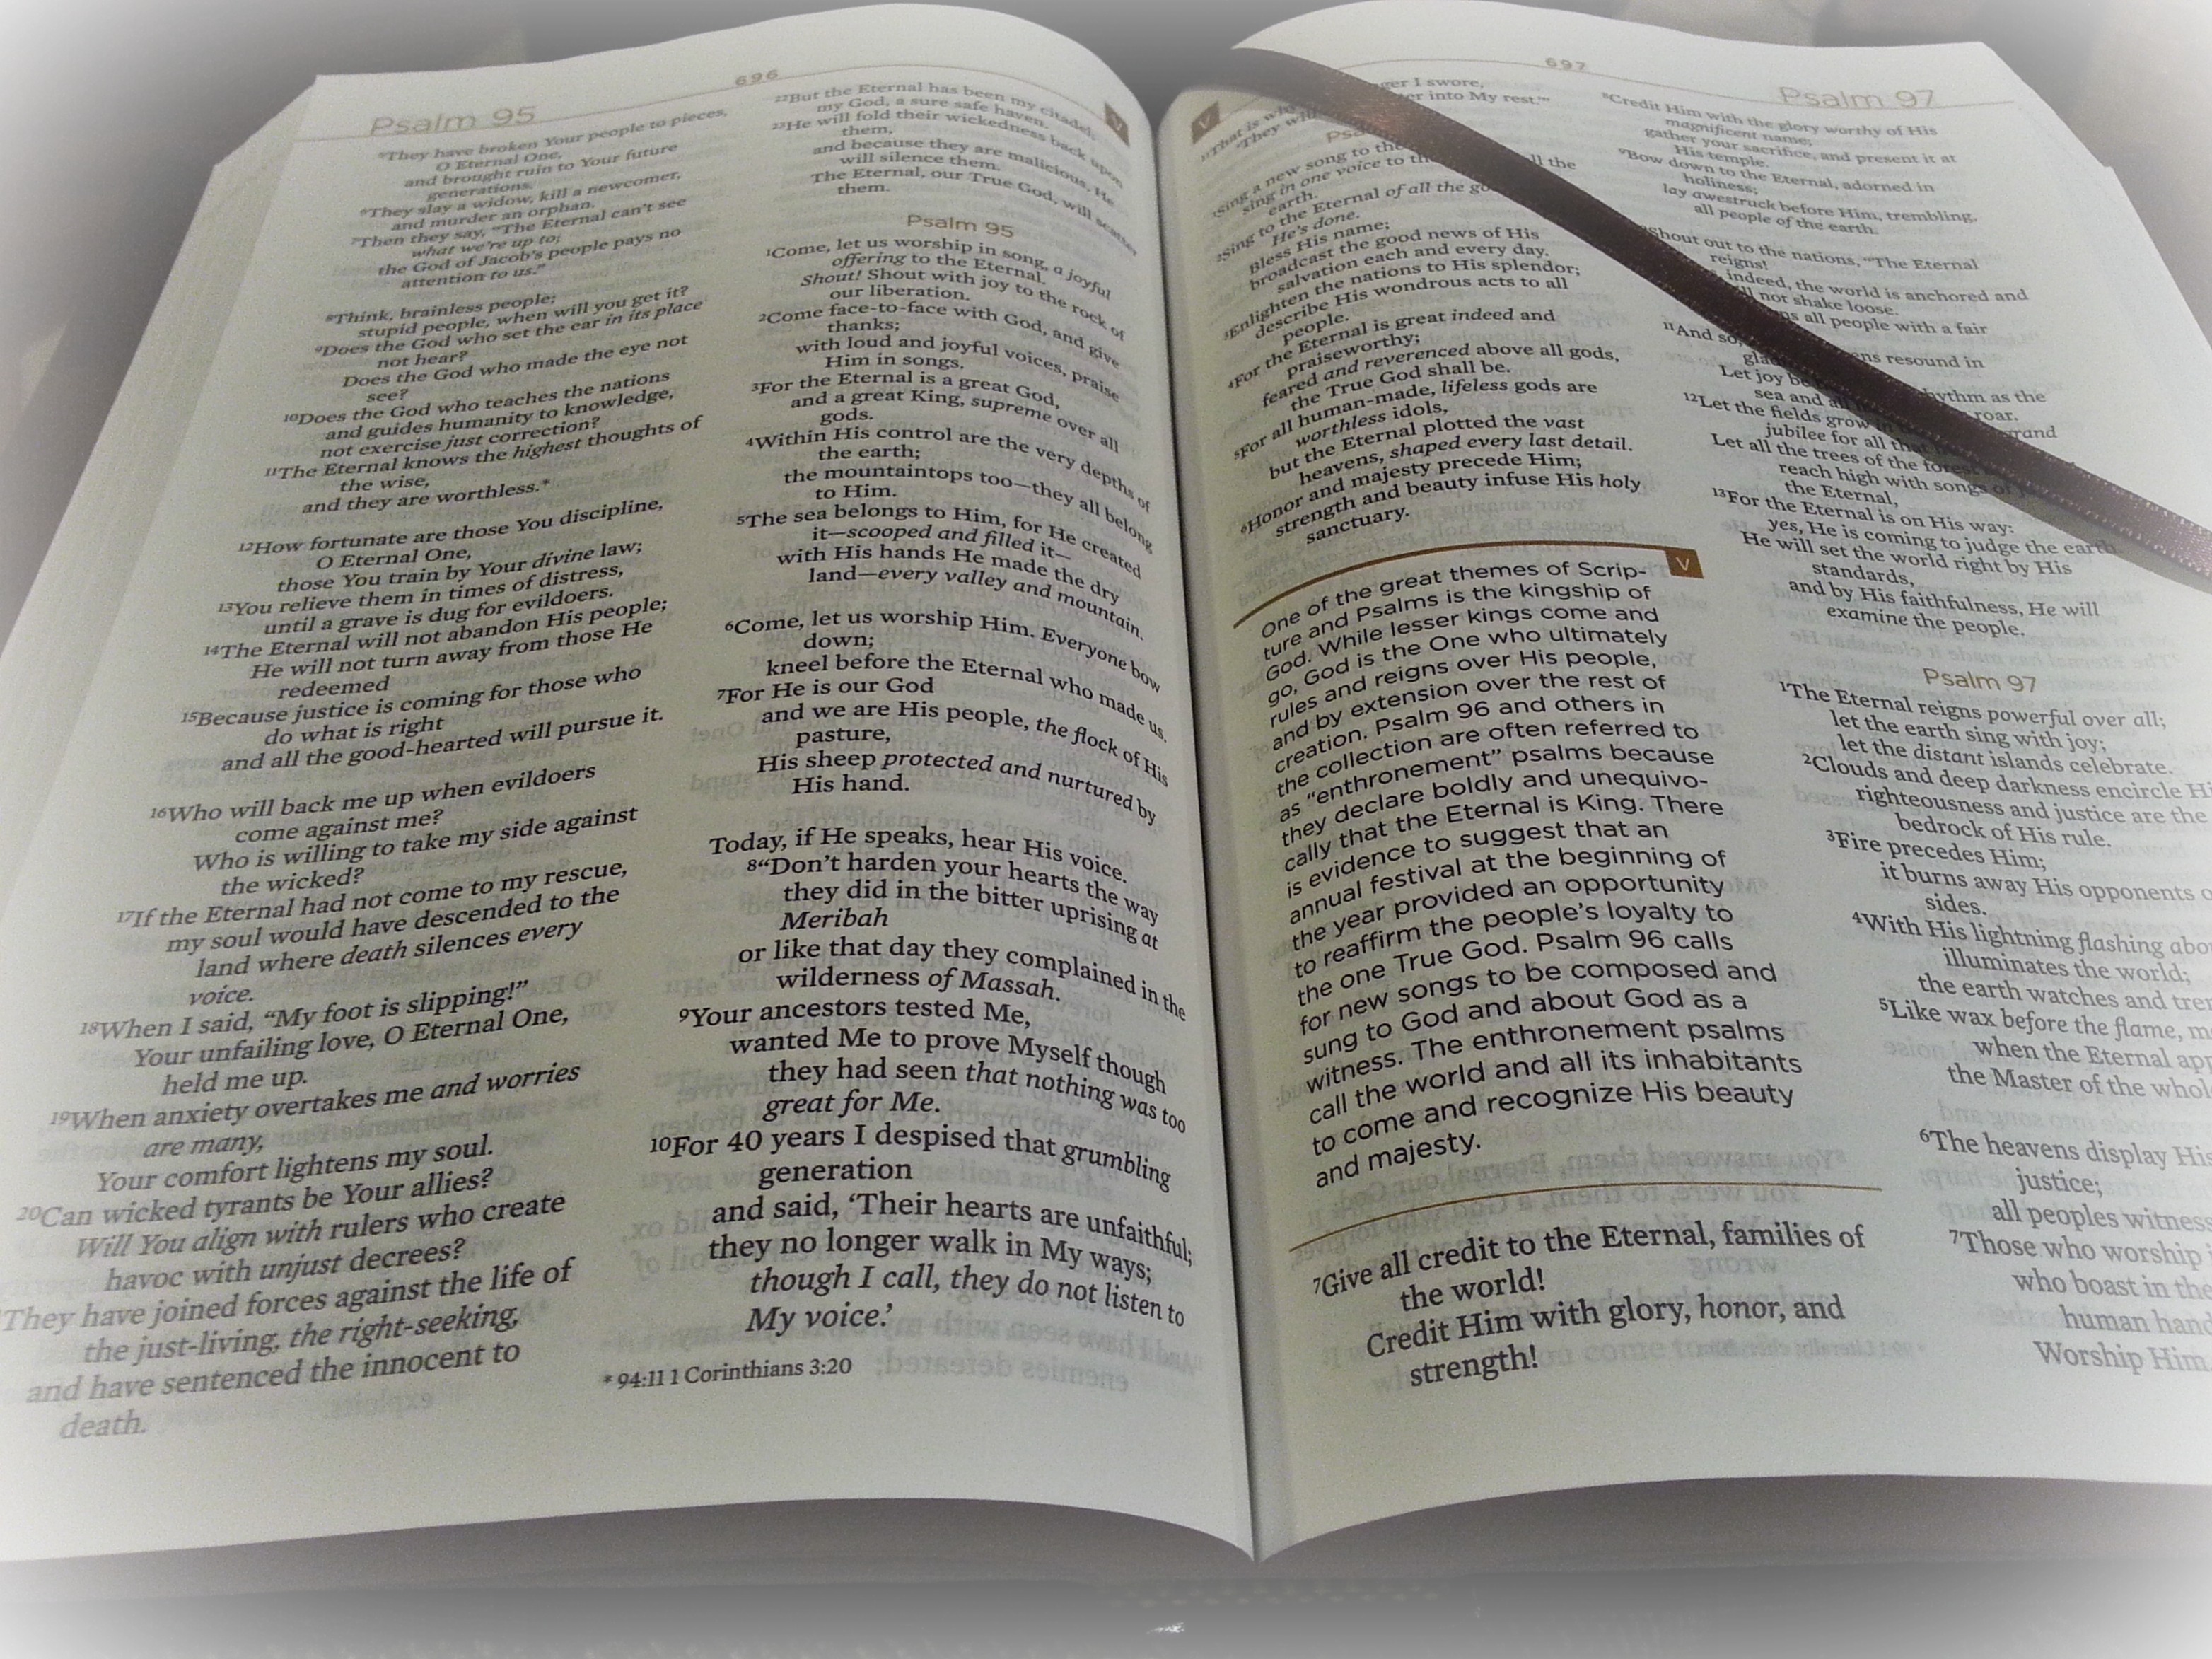 696
Psalm 95
⁵They have broken Your people to pieces,
O Eternal One,
and brought ruin to Your future
generations.
⁶They slay a widow, kill a newcomer,
and murder an orphan.
⁷Then they say, “The Eternal can’t see
what we’re up to;
the God of Jacob’s people pays no
attention to us.”
⁸Think, brainless people;
stupid people, when will you get it?
⁹Does the God who set the ear in its place
not hear?
Does the God who made the eye not
see?
¹⁰Does the God who teaches the nations
and guides humanity to knowledge,
not exercise just correction?
¹¹The Eternal knows the highest thoughts of
the wise,
and they are worthless.*
¹²How fortunate are those You discipline,
O Eternal One,
those You train by Your divine law;
¹³You relieve them in times of distress,
until a grave is dug for evildoers.
¹⁴The Eternal will not abandon His people;
He will not turn away from those He
redeemed
¹⁵Because justice is coming for those who
do what is right
and all the good-hearted will pursue it.
¹⁶Who will back me up when evildoers
come against me?
Who is willing to take my side against
the wicked?
¹⁷If the Eternal had not come to my rescue,
my soul would have descended to the
land where death silences every
voice.
¹⁸When I said, “My foot is slipping!”
Your unfailing love, O Eternal One,
held me up.
¹⁹When anxiety overtakes me and worries
are many,
Your comfort lightens my soul.
²⁰Can wicked tyrants be Your allies?
Will You align with rulers who create
havoc with unjust decrees?
They have joined forces against the life of
the just-living, the right-seeking,
and have sentenced the innocent to
death.
²²But the Eternal has been my citadel,
my God, a sure safe haven.
²³He will fold their wickedness back upon
them,
and because they are malicious, He
will silence them.
The Eternal, our True God, will scatter
them.
Psalm 95
¹Come, let us worship in song, a joyful
offering to the Eternal.
Shout! Shout with joy to the rock of
our liberation.
²Come face-to-face with God, and give
thanks;
with loud and joyful voices, praise
Him in songs.
³For the Eternal is a great God,
and a great King, supreme over all
gods.
⁴Within His control are the very depths of
the earth;
the mountaintops too—they all belong
to Him.
⁵The sea belongs to Him, for He created
it—scooped and filled it—
with His hands He made the dry
land—every valley and mountain.
⁶Come, let us worship Him. Everyone bow
down;
kneel before the Eternal who made us.
⁷For He is our God
and we are His people, the flock of His
pasture,
His sheep protected and nurtured by
His hand.
Today, if He speaks, hear His voice.
⁸“Don’t harden your hearts the way
they did in the bitter uprising at
Meribah
or like that day they complained in the
wilderness of Massah.
⁹Your ancestors tested Me,
wanted Me to prove Myself though
they had seen that nothing was too
great for Me.
¹⁰For 40 years I despised that grumbling
generation
and said, ‘Their hearts are unfaithful;
they no longer walk in My ways;
though I call, they do not listen to
My voice.’
* 94:11 1 Corinthians 3:20
V
697
Psalm 97
V
¹¹That is why I swore,
“They will into My rest.”
¹Sing a new song to the
sing in one voice to the all the
earth.
²Sing to the Eternal of all the
He’s done.
Bless His name;
broadcast the good news of His
salvation each and every day.
³Enlighten the nations to His splendor;
describe His wondrous acts to all
people.
⁴For the Eternal is great indeed and
praiseworthy;
feared and reverenced above all gods,
the True God shall be.
⁵For all human-made, lifeless gods are
worthless idols,
but the Eternal plotted the vast
heavens, shaped every last detail.
⁶Honor and majesty precede Him;
strength and beauty infuse His holy
sanctuary.
V
One of the great themes of Scrip-
ture and Psalms is the kingship of
God. While lesser kings come and
go, God is the One who ultimately
rules and reigns over His people,
and by extension over the rest of
creation. Psalm 96 and others in
the collection are often referred to
as “enthronement” psalms because
they declare boldly and unequivo-
cally that the Eternal is King. There
is evidence to suggest that an
annual festival at the beginning of
the year provided an opportunity
to reaffirm the people’s loyalty to
the one True God. Psalm 96 calls
for new songs to be composed and
sung to God and about God as a
witness. The enthronement psalms
call the world and all its inhabitants
to come and recognize His beauty
and majesty.
⁷Give all credit to the Eternal, families of
the world!
Credit Him with glory, honor, and
strength!
⁸Credit Him with the glory worthy of His
magnificent name;
gather your sacrifice, and present it at
His temple.
⁹Bow down to the Eternal, adorned in
holiness;
lay awestruck before Him, trembling,
all people of the earth.
Shout out to the nations, “The Eternal
reigns!
indeed, the world is anchored and
not shake loose.
all people with a fair
¹¹And so, resound in
Let joy be rhythm as the
sea and all roar.
¹²Let the fields grow in grand
jubilee for all that
Let all the trees of the forest
reach high with songs of
the Eternal,
¹³For the Eternal is on His way:
yes, He is coming to judge the earth.
He will set the world right by His
standards,
and by His faithfulness, He will
examine the people.
Psalm 97
¹The Eternal reigns powerful over all;
let the earth sing with joy;
let the distant islands celebrate.
²Clouds and deep darkness encircle
righteousness and justice are the
bedrock of His rule.
³Fire precedes Him;
it burns away His opponents
sides.
⁴With His lightning flashing
illuminates the world;
the earth watches and
⁵Like wax before the flame,
when the Eternal
the Master of the
⁶The heavens display His
justice;
all peoples witness
⁷Those who worship
who boast in the
human
Worship Him